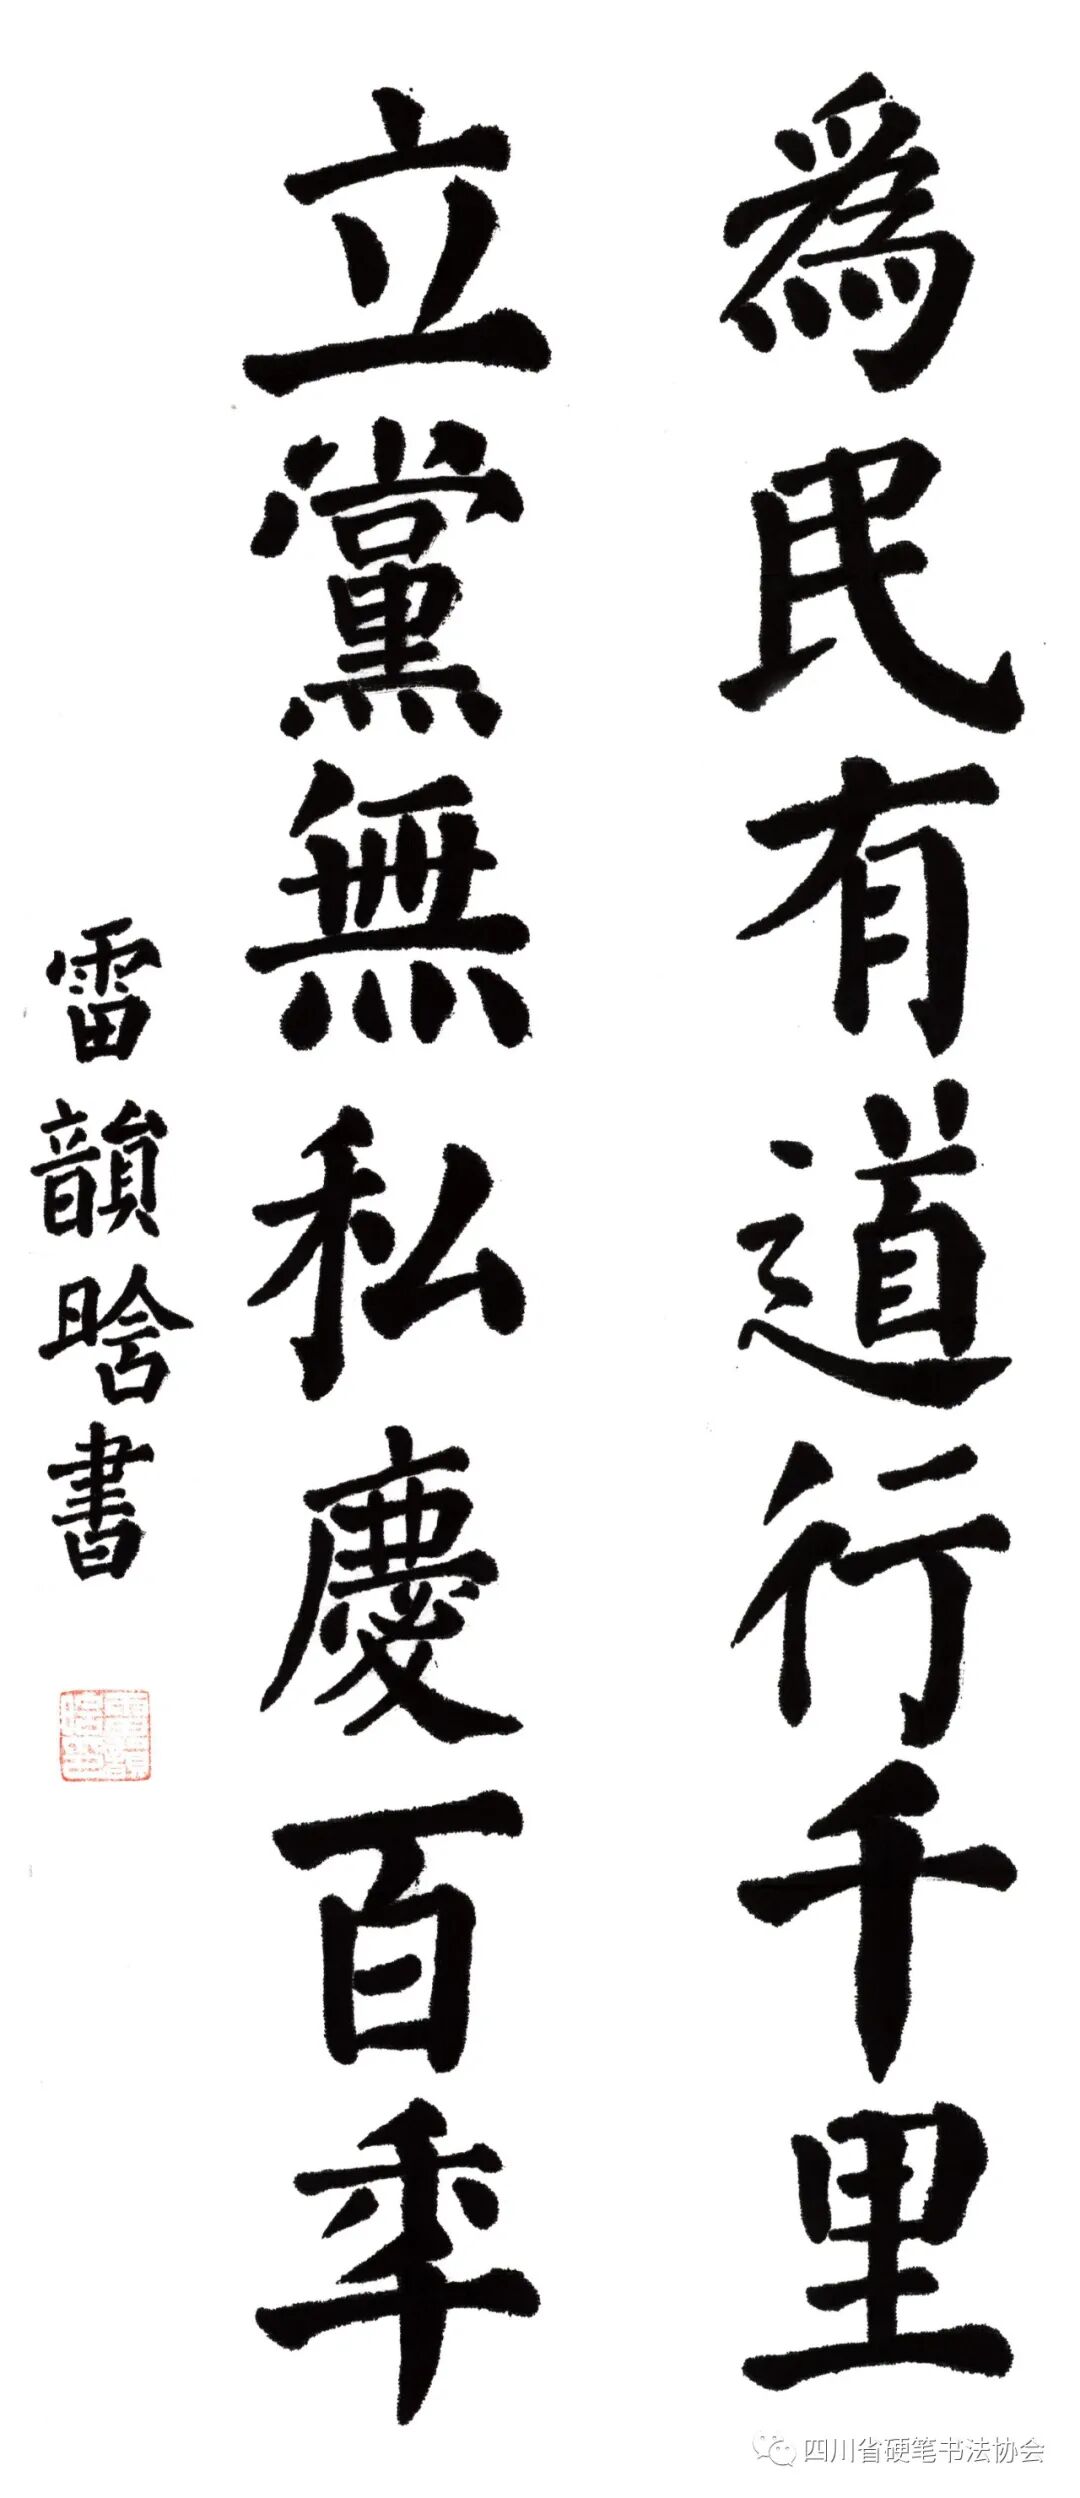 為民有道行千里
立黨無私慶百年
雷韻晗書
四川省硬笔书法协会